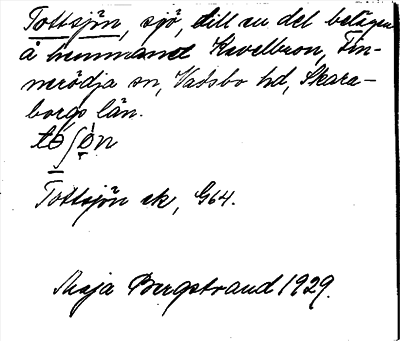 Tottsjön, sjö, till en del belägen
å hemmanet Kavelbron, Fin-
nerödja sn, Vadsbo hd, Skara-
borgs län.
Tottsjön ek, G64.
Maja Bergstrand 1929.